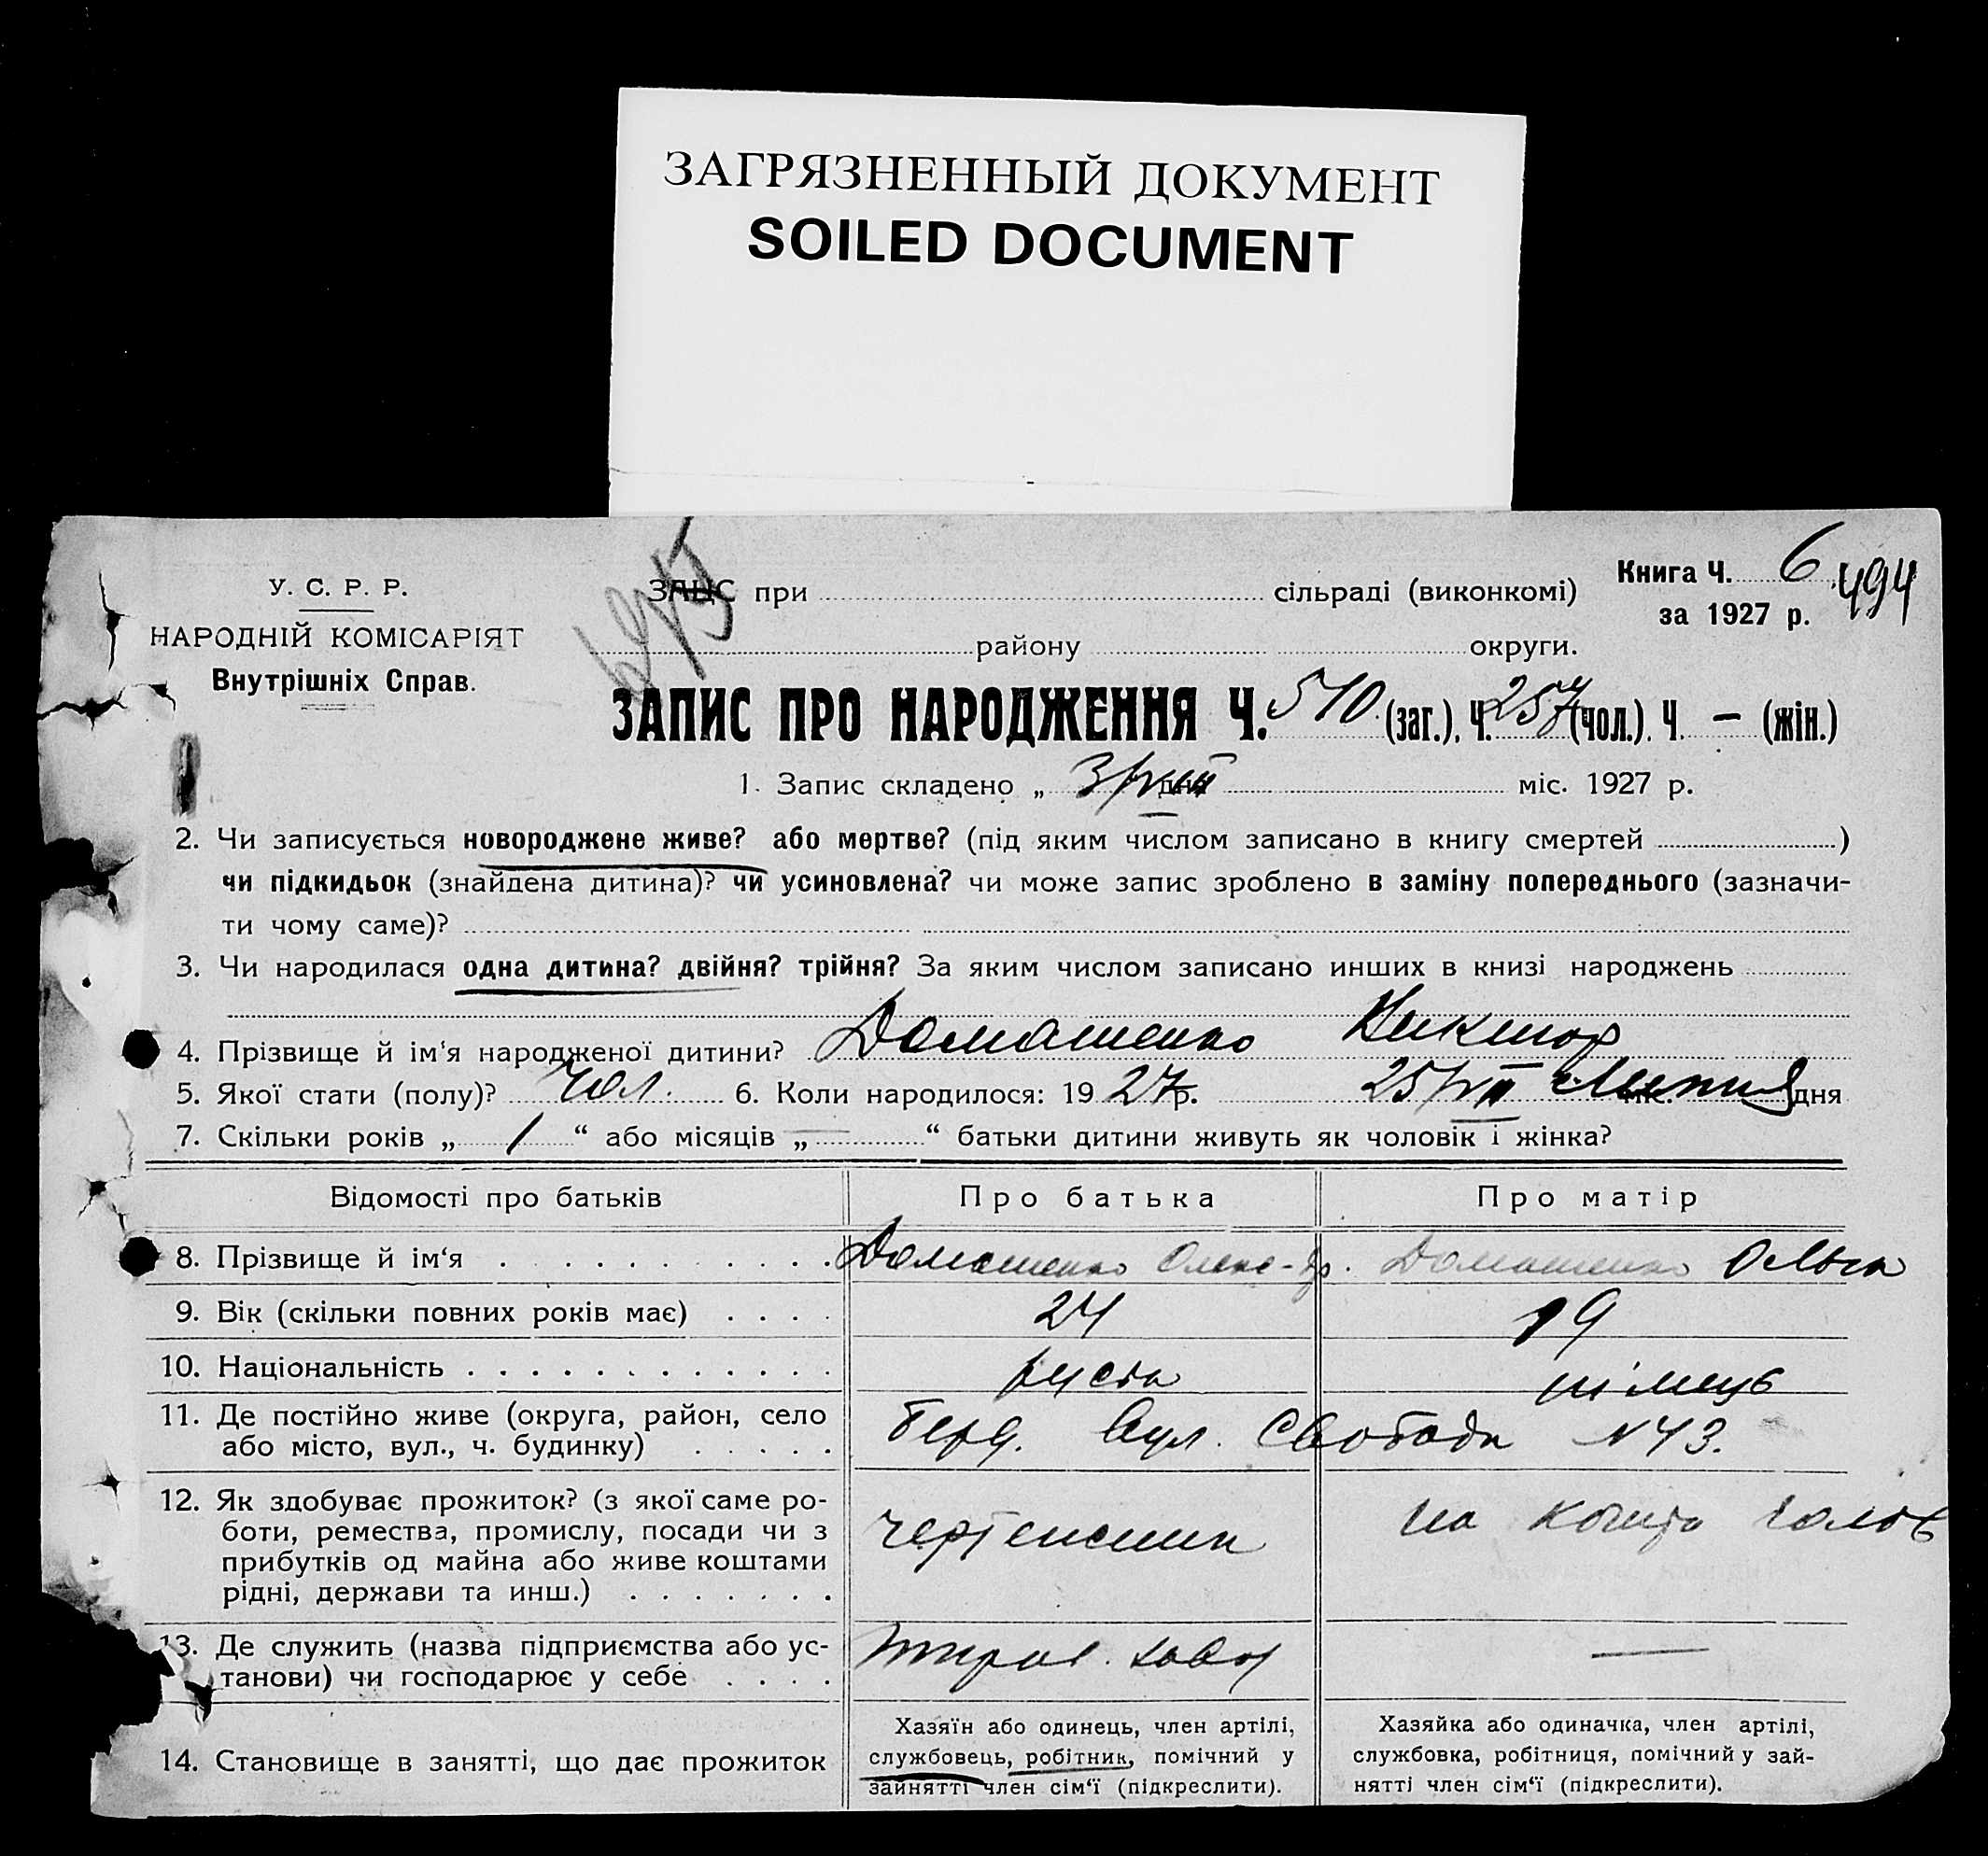 ЗАГРЯЗНЕННЫЙ ДОКУМЕНТ
SOILED DOCUMENT
Книга Ч. 6 494
У. С. Р. Р.
ЗАЦС при сільраді (виконкомі)
за 1927 р.
НАРОДНІЙ КОМІСАРІЯТ
району округи.
Внутрішніх Справ.
ЗАПИС ПРО НАРОДЖЕННЯ Ч. 510 (заг.). Ч. 257 (чол.). Ч. — (жін.)
1. Запис складено „ 3/VIII дня міс. 1927 р.
2. Чи записується новороджене живе? або мертве? (під яким числом записано в книгу смертей )
чи підкидьок (знайдена дитина)? чи усиновлена? чи може запис зроблено в заміну попереднього (зазначи-
ти чому саме)?
3. Чи народилася одна дитина? двійня? трійня? За яким числом записано инших в книзі народжень
4. Прізвище й ім'я народженої дитини? Домашенко Виктор
5. Якої стати (полу)? Чол. 6. Коли народилося: 1927 р. 25/VII Липня дня
7. Скільки років „ 1 “ або місяців „ — “ батьки дитини живуть як чоловік і жінка?
Відомості про батьків Про батька Про матір
8. Прізвище й ім‘я . . . . . . . . . . . Домашенко Олекс-др. Домашенко Ольга
9. Вік (скільки повних років має) . . . . 24 19
10. Національність . . . . . . . . . . . . німець
11. Де постійно живе (округа, район, село
або місто, вул., ч. будинку) . . . . . Берд. Вул. Свободи N 43.
12. Як здобуває прожиток? (з якої саме ро-
боти, ремества, промислу, посади чи з
прибутків од майна або живе коштами
рідні, держави та инш.) . . . . . . . на кошти голов
13. Де служить (назва підприємства або ус-
танови) чи господарює у себе . . . . завод —
14. Становище в занятті, що дає прожиток
Хазяїн або одинець, член артілі,
службовець, робітник, помічний у
зайнятті член сім‘ї (підкреслити).
Хазяйка або одиначка, член артілі,
службовка, робітниця, помічний у зай-
нятті член сім‘ї (підкреслити).